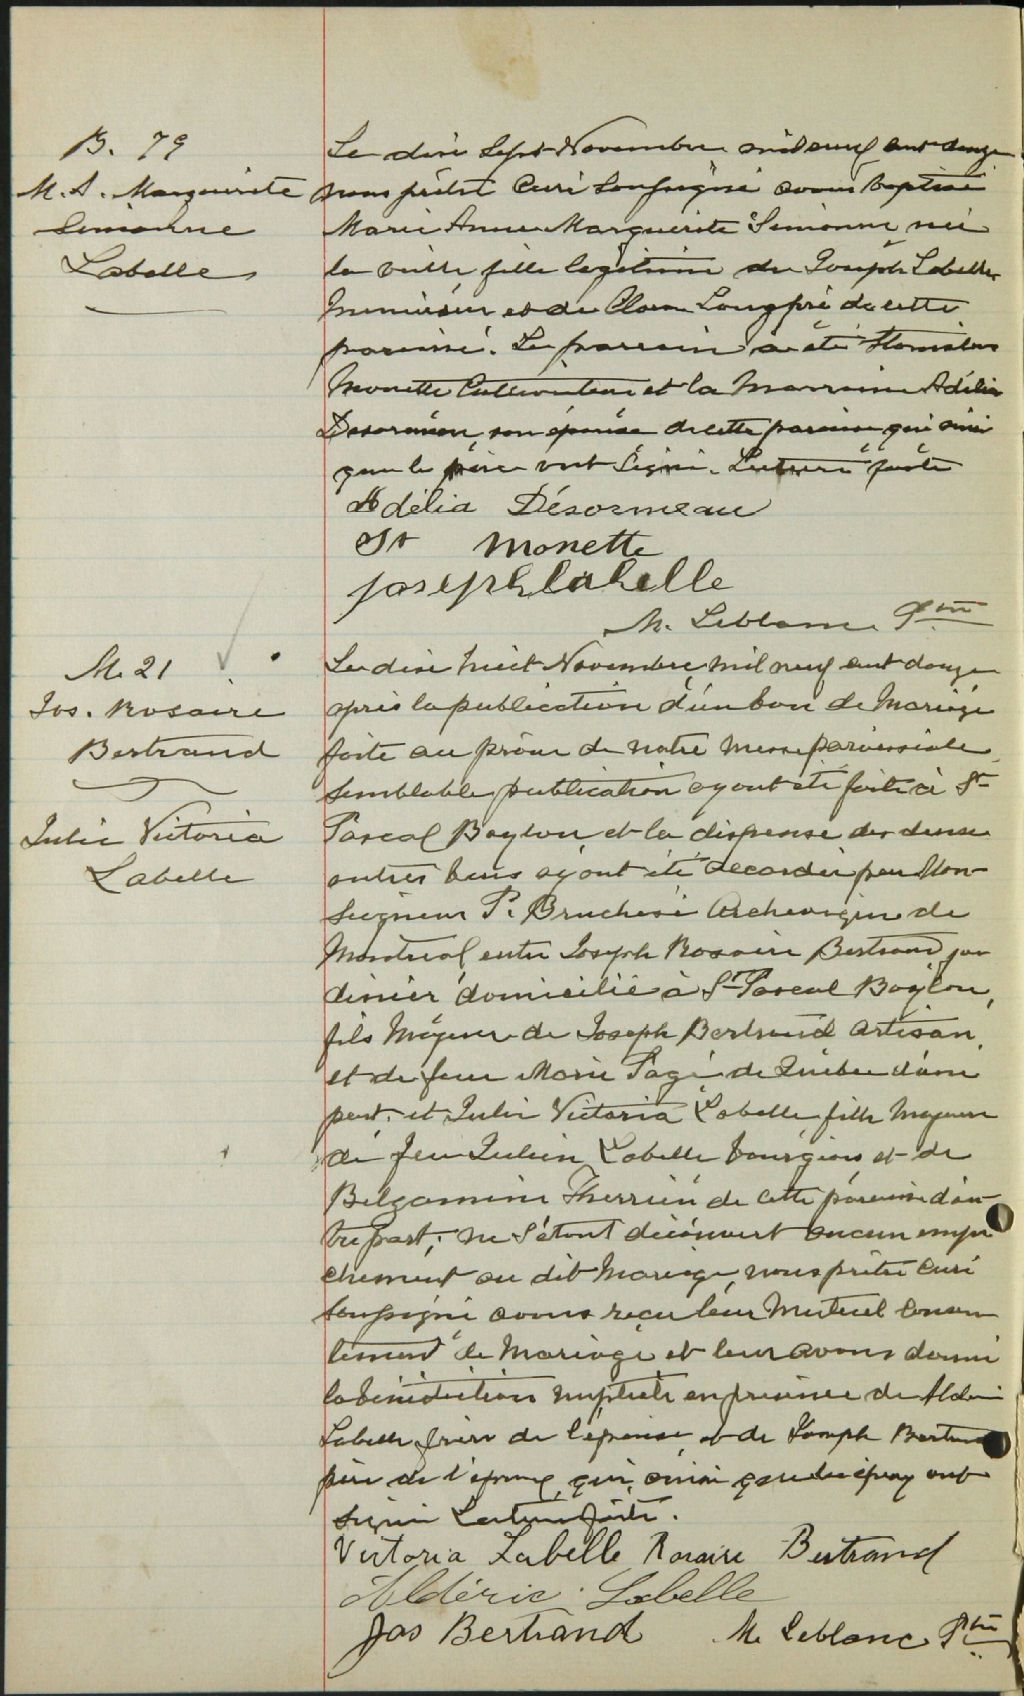 B. 79
M. A. Marguerite
Simonne
Labelle
Le dix Sept Novembre mil neuf cent douze
nous prêtre Curé Soussigné avons baptisé
Marie Anne Marguerite Simonne née
la veille fille légitime de Joseph Labelle
Menuisier et de Clara Longpré de cette
paroisse. Le parrain a été Stanislas
Monette Cultivateur et la Marraine Adélia
Desormeau son épouse de cette paroisse qui ainsi
que le père ont Signé. Lecture faite
Adélia Désormeau
St Monette
Joseph Labelle
M. Leblanc Ptre
M. 21
Jos. Rosaire
Bertrand
Julie Victoria
Labelle
Le dix huit Novembre mil neuf cent douze
après la publication d'un ban de Mariage
faite au prône de notre Messe paroissiale
semblable publication ayant été faite à St
Pascal Baylon et la dispense des deux
autres bans ayant été accordée par Mon-
Seigneur P. Bruchési Archevêque de
Montréal entre Joseph Rosaire Bertrand jar
dinier domicilié à St Pascal Baylon,
fils Majeur de Joseph Bertrand artisan
et de feue Marie Pagé de Québec d'une
part, et Julie Victoria Labelle fille Majeure
de feu Julien Labelle bourgeois et de
Therrien de cette paroisse d'au-
tre part; ne S'étant découvert aucun empê
chement au dit Mariage, nous prêtre Curé
Soussigné avons reçu leur Mutuel Consen
tement de Mariage et leur avons donné
la bénédiction nuptiale en présence de Aldéric
Labelle frère de l'épouse, et de Joseph Bertrand
père de l'époux, qui, ainsi que les époux ont
signé Lecture faite.
Victoria Labelle Rosaire Bertrand
Aldéric Labelle
Jos Bertrand M. Leblanc Ptre